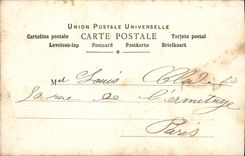 UNION POSTALE UNIVERSELLE
CARTE POSTALE
Cartolina postale Tarjeta postal
Levelezö-lap Postcard Postkarte Briefkart
Louis
rue de l'ermitage
Paris